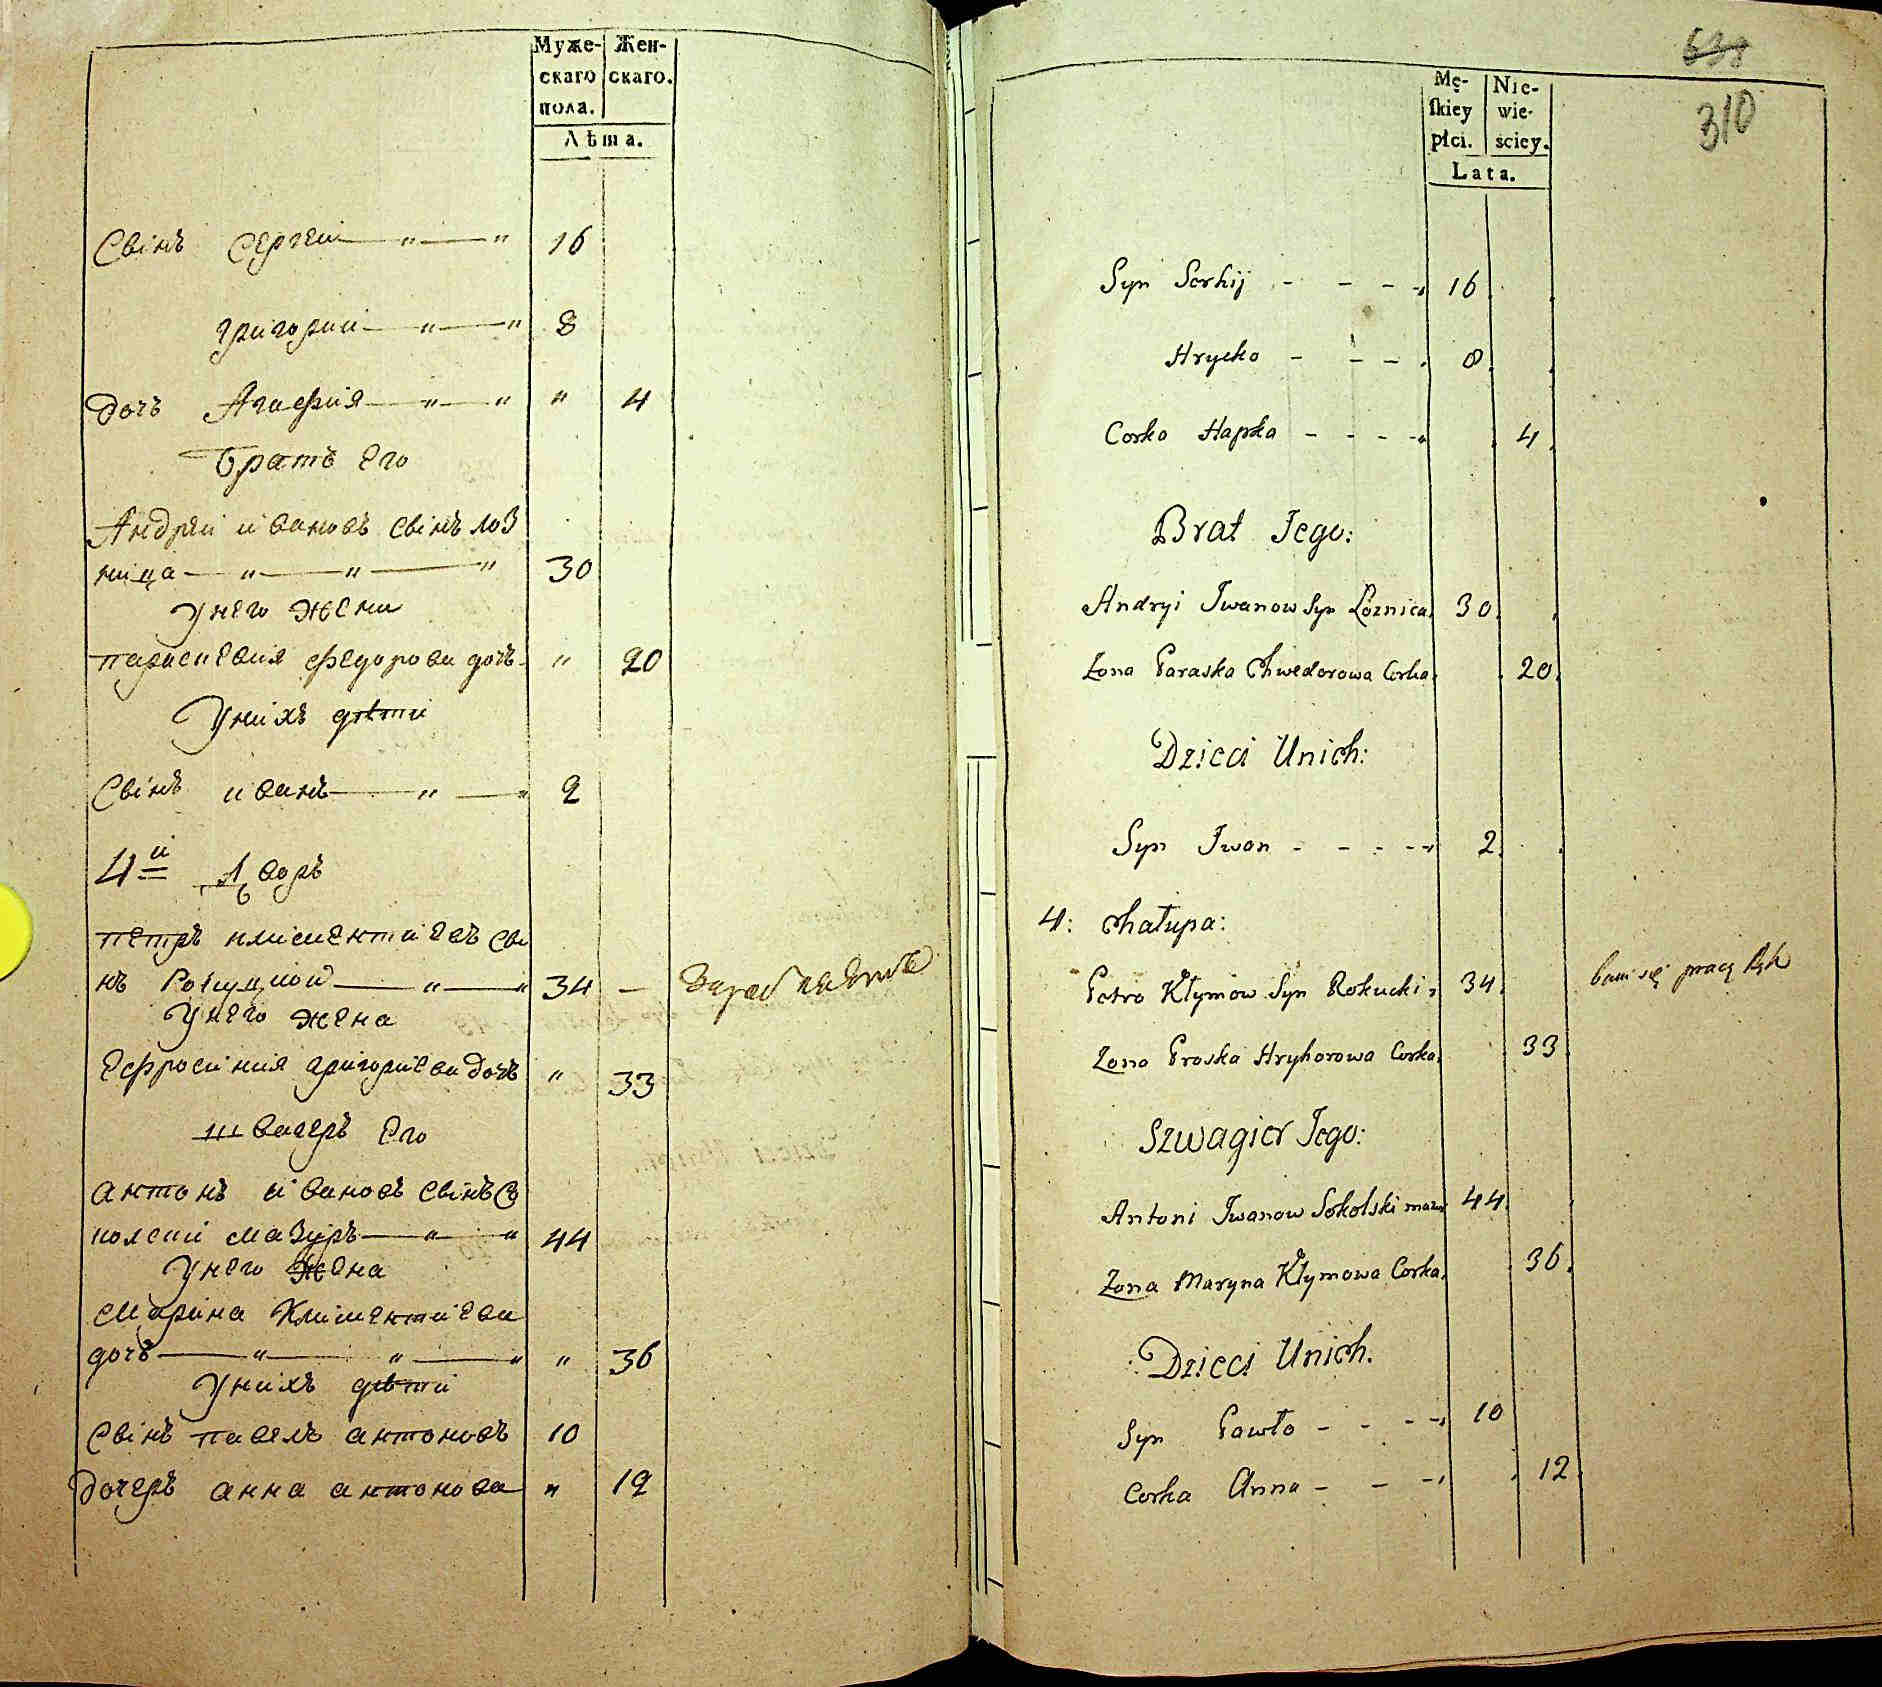 Муже- Жен-
скаго скаго.
пола.
Лѣта.
Свінъ Сергеи 16
григории 8
дочъ Агафия " 4
братъ Его
Андреи ивановъ свінъ лоз
ница 30
унего жена
параскевия федорова дочъ " 20
унихъ дѣти
Свінъ иванъ 2
4й дворъ
петръ климентиевъ сві
нъ Рокуцкои 34
унего жена
Ефросиния григориева дочъ " 33
швагеръ Его
антонъ ивановъ свінъ со
колский мазуръ 44
унего жена
Марина Климентиева
дочъ " 36
унихъ дѣти
свінъ павелъ антоновъ 10
дочеръ анна антонова " 12
638
310
Mę- Nie-
skiey wie-
płci. sciey.
Lata.
Syn Serhij 16
Hrycko 8
Corka Hapka 4
Brat Jego:
Andryi Iwanow Syn Łoznica 30
Zona Paraska Chwedorowa Corka 20
Dzieci Unich:
Syn Iwan 2
4: Chałupa:
Petro Kłymow Syn Rokucki 34 bawi się pracą Rąk
Zona Proska Hryhorowa Corka 33
Szwagier Jego:
Antoni Iwanow Sokolski mazur 44
Zona Maryna Kłymowa Corka 36
Dzieci Unich.
Syn Pawło 10
Corka Anna 12